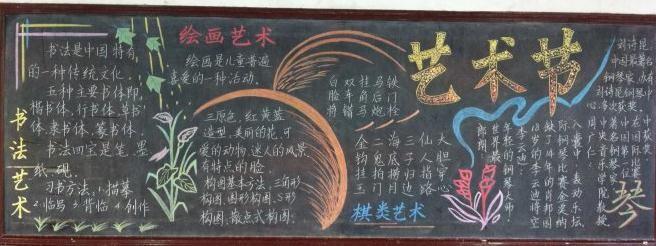 艺术节
书法艺术
书法是中国特有
的一种传统文化。
五种主要书体即
楷书体、行书体、草书
体、隶书体、篆书体。
书法四宝是笔、墨
纸、砚。
习书方法：1.描摹
2.临写 3.背临 4.创作
绘画艺术
绘画是儿童普遍
喜爱的一种活动。
三原色：红黄蓝
造型：美丽的花，可
爱的动物，迷人的风景，
有特点的脸。
构图基本方法：三角形
构图、圆形构图、S形
构图、散点式构图。
棋类艺术
铁门栓
马后炮
挂角马
双车错
白脸将
大胆穿心
仙人指路
三子归边
海底捞月
二鬼拍门
全钩挂玉
琴
李云迪：
年轻的钢琴大师
18岁的李云迪将空
缺了15年的肖邦国
际钢琴比赛金奖纳
入囊中，轰动乐坛